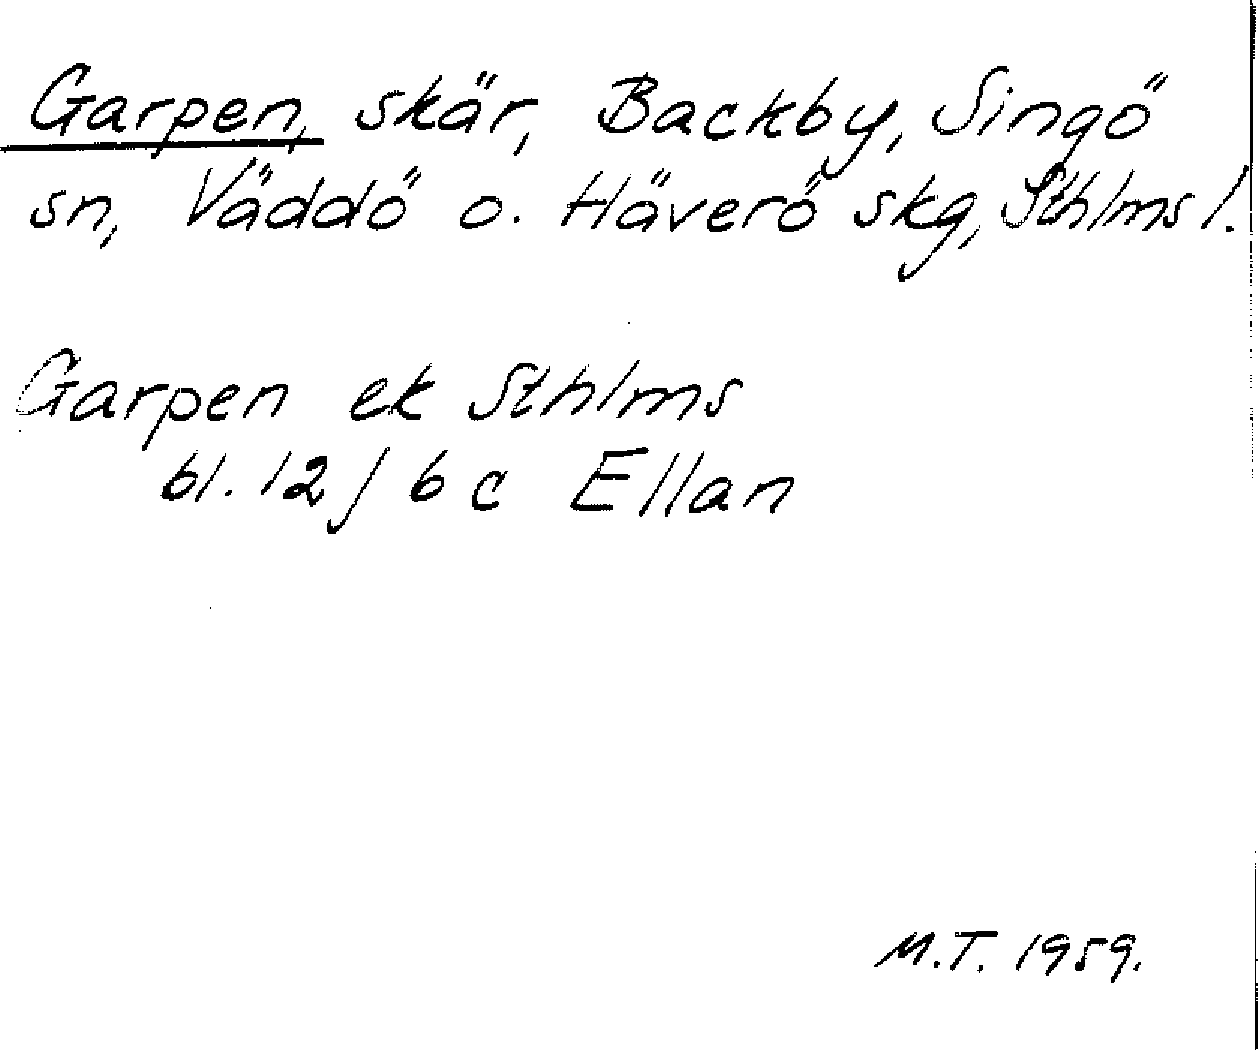 Garpen, skär, Backby, Singö
sn, Väddö o. Häverö skg, Sthlms l.
Garpen ek Sthlms
bl. 12 / 6 c Ellan
M.T. 1959.